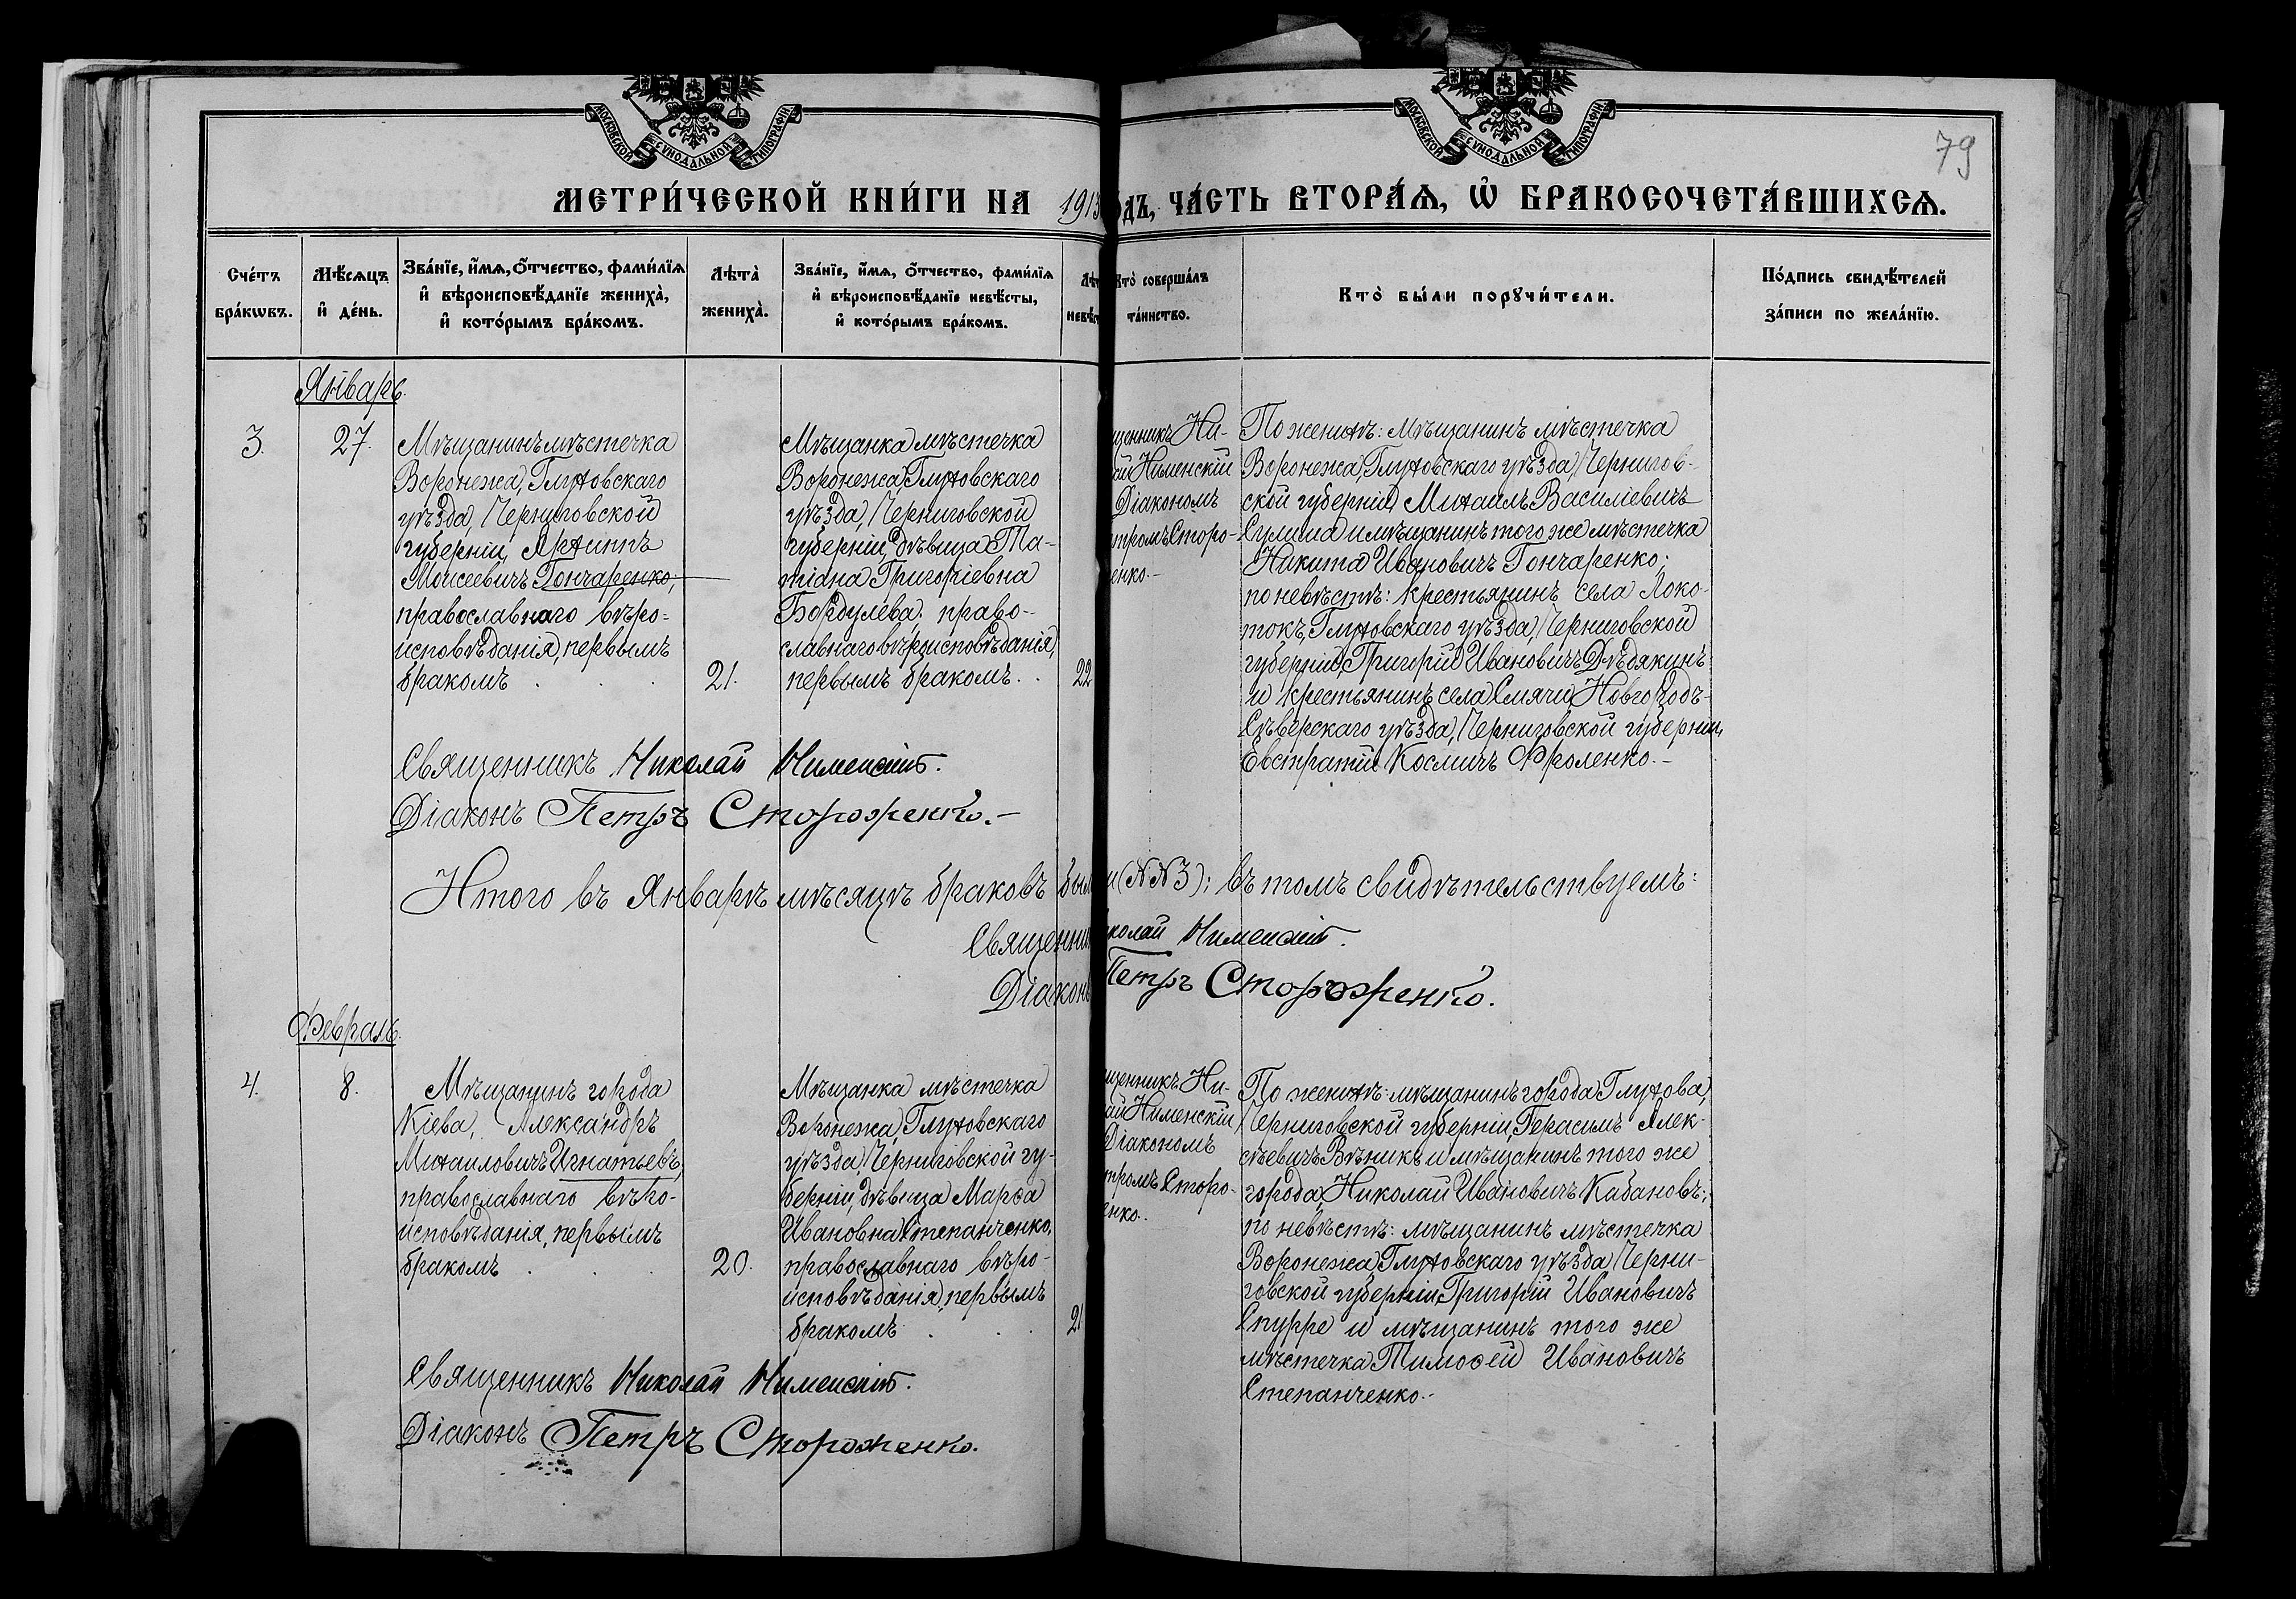 МОСКОВСКОЙ СѴНОДАЛЬНОЙ ТИПОГРАФІИ
МОСКОВСКОЙ СѴНОДАЛЬНОЙ ТИПОГРАФІИ
79
МЕТРИ́ЧЕСКОЙ КНИ́ГИ НА 1913
ДЪ, ЧА́СТЬ ВТОРА́Ѧ, Ѡ҆ БРАКОСОЧЕТА́ВШИХСѦ.
Сче́тъ
бра́кѡвъ.
Мѣ́сѧцъ
и҆ де́нь.
Зва́нїе, и҆́мѧ, ѻ҆́тчество, фами́лїѧ
и҆ вѣроисповѣ́данїе жениха̀,
и҆ кото́рымъ бра́комъ.
Лѣта̀
жениха̀.
Зва́нїе, и҆́мѧ, ѻ҆́тчество, фами́лїѧ
и҆ вѣроисповѣ́данїе невѣ́сты,
и҆ кото́рымъ бра́комъ.
Лѣт
невѣс
Кто̀ соверша́лъ
та́инство.
Кто̀ бы́ли порꙋчи́тели.
По́дпись свидѣ́телей
за́писи по жела́нїю.
Январь.
3.
27.
Мѣщанинъ мѣстечка
Воронежа, Глуховскаго
уѣзда, Черниговской
губерніи, Архиппъ
Моисеевичъ Гончаренко;
православнаго вѣро=
исповѣданія, первымъ
бракомъ . . .
21.
Мѣщанка мѣстечка
Воронежа, Глуховскаго
уѣзда, Черниговской
губерніи, дѣвица Та-
тіана Григоріевна
Бордулева; право-
славнаго вѣроисповѣданія,
первымъ бракомъ. .
22
щенникъ Ни-
ай Нименскій
Діакономъ
тромъ Сторо-
енко.-
По женихѣ: мѣщанинъ мѣстечка
Воронежа, Глуховскаго уѣзда, Чернигов-
ской губерніи, Михаилъ Василіевичъ
Сулима и мѣщанинъ того же мѣстечка
Никита Ивановичъ Гончаренко;
по невѣстѣ: крестьянинъ села Локо-
токъ, Глуховскаго уѣзда, Черниговской
губерніи, Григорій Ивановичъ Дѣдякинъ
и крестьянинъ села Смячи, Новгородъ-
Сѣверскаго уѣзда, Черниговской губерніи,
Евстратій Космичъ Фроленко.-
Священникъ Николай Нименскій.
Діаконъ Петръ Стороженко.-
Итого въ Январѣ мѣсяцѣ браковъ был
и (№№3); въ томъ свидѣтельствуемъ:
Священни
колай Нименскій.
Діаконъ
Петръ Стороженко.
Февраль.
4.
8.
Мѣщанинъ города
Кіева, Александръ
Михаиловичъ Игнатьевъ,
православнаго вѣро-
исповѣданія, первымъ
бракомъ . . .
20.
Мѣщанка мѣстечка
Воронежа, Глуховскаго
уѣзда, Черниговской гу-
берніи, дѣвица Марѳа
Ивановна Степанченко,
православнаго вѣро-
исповѣданія, первымъ
бракомъ . . .
21
щенникъ Ни-
ай Нименскій
Діакономъ
тромъ Сторо-
енко.
По женихѣ: мѣщанинъ города Глухова,
Черниговской губерніи, Герасимъ Алек-
сѣевичъ Вѣникъ и мѣщанинъ того же
города, Николай Ивановичъ Кабановъ;
по невѣстѣ: мѣщанинъ мѣстечка
Воронежа, Глуховскаго уѣзда, Черни-
говской губерніи, Григорій Ивановичъ
Спурре и мѣщанинъ того же
мѣстечка Тимоѳей Ивановичъ
Степанченко.-
Священникъ Николай Нименскій.
Діаконъ Петръ Стороженко.